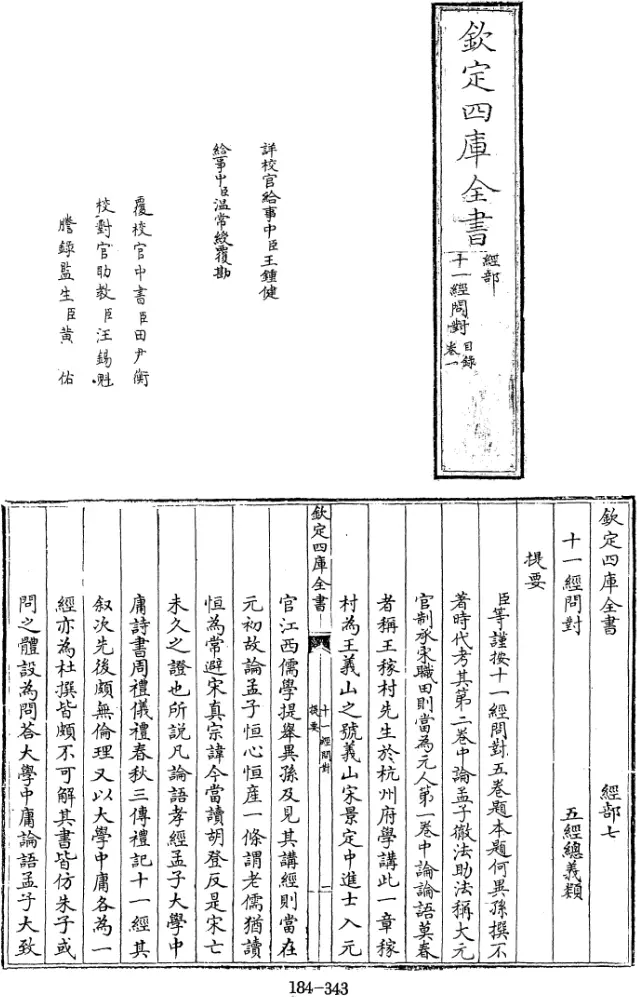 欽定四庫全書
經部
十一經問對
目錄
卷一
詳校官給事中臣王鍾健
給事中臣温常綬覆勘
覆校官中書臣田尹衡
校對官助教臣汪錫魁
謄錄監生臣黄佑
欽定四庫全書　經部七
十一經問對　五經總義類
提要
臣等謹按十一經問對五卷題本題何異孫撰不
著時代考其第二巻中論孟子徹法助法稱大元
官制承宋職田則當為元人第一巻中論論語莫春
者稱王稼村先生於杭州府學講此一章稼
村為王義山之號義山宋景定中進士入元
欽定四庫全書
十一經問對
提要
一
官江西儒學提舉異孫及見其講經則當在
元初故論孟子恒心恒産一條謂老儒猶讀
恒為常避宋真宗諱今當讀胡登反是宋亡
未久之證也所説凡論語孝經孟子大學中
庸詩書周禮儀禮春秋三傳禮記十一經其
叙次先後頗無倫理又以大學中庸各為一
經亦為杜撰皆頗不可解其書皆仿朱子或
問之體設為問答大學中庸論語孟子大致
184-343